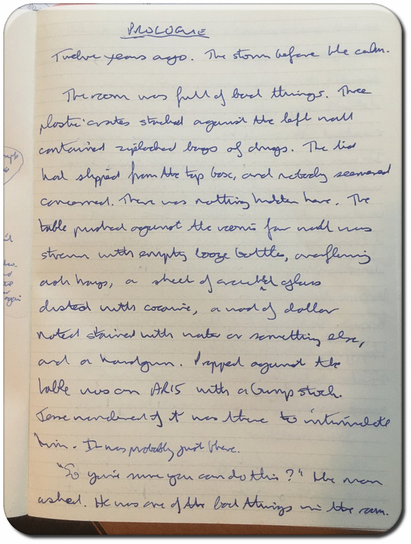 PROLOGUE
Twelve years ago. The storm before the calm.
The room was full of bad things. Three
plastic crates stacked against the left wall
contained ziplocked bags of drugs. The lid
had slipped from the top box, and nobody seemed
concerned. There was nothing hidden here. The
table pushed against the room's far wall was
strewn with empty booze bottles, overflowing
ash trays, a sheet of glass
dusted with cocaine, a wad of dollar
notes stained with water or something else,
and a handgun. Propped against the
table was an AR15 with a bump stock.
Jesse wondered if it was there to intimidate
him. It was probably just there.
"So you're sure you can do this?" the man
asked. He was one of the bad things in the room.